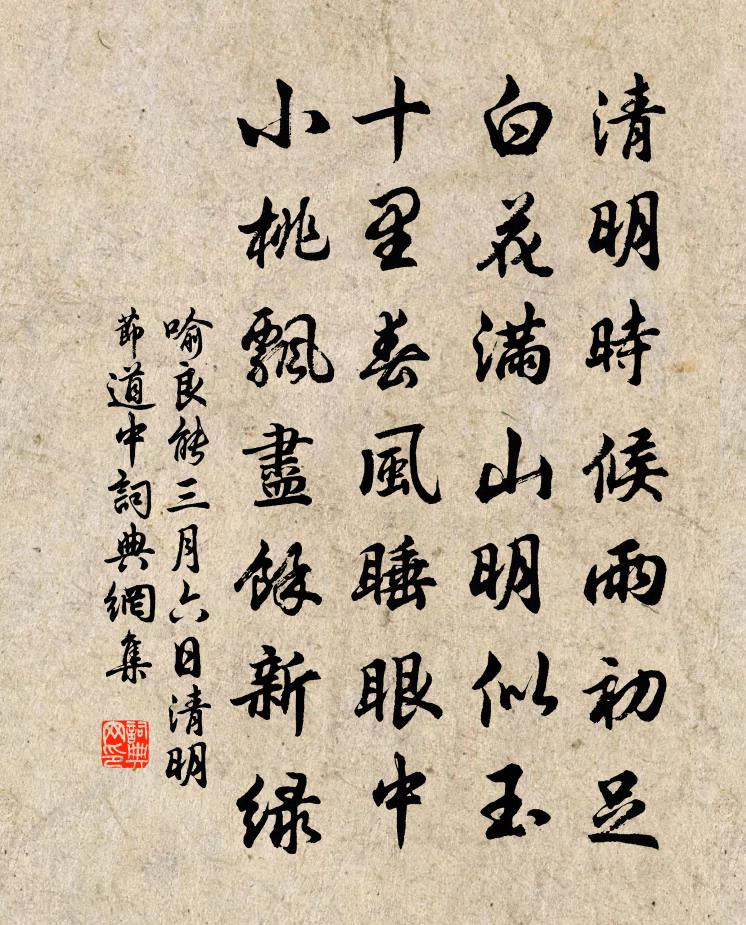 清明時候雨初足
白花滿山明似玉
十里春風睡眼中
小桃飄盡餘新綠
喻良能三月六日清明
節道中詞典網集
詞典网印